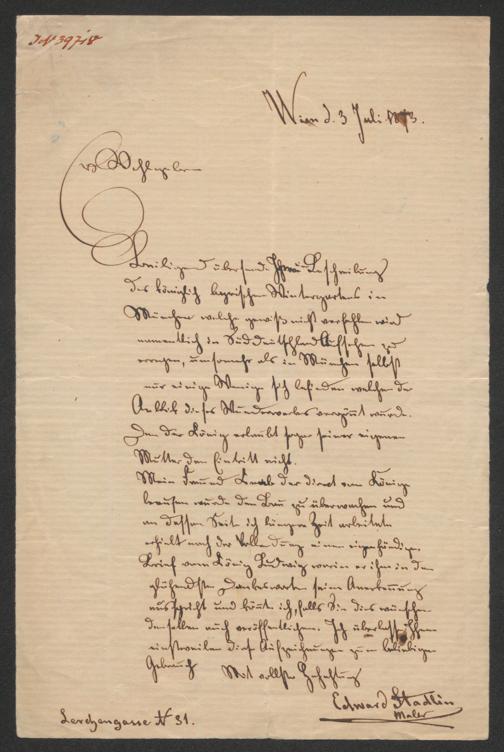 IN 39718
Wien d. 3 Juli 1873.
Wohlgeboren
Beiliegend übersende Ihnen Beschreibung
des königlich bayrischen Wintergartens in
München welche gewiß nicht verfehlen wird
namentlich in Süddeutschland Aufsehen zu
erregen, umsomehr als in München selbst
nur einige Wenige sich befinden welchen der
Anblik dieses Wunderwerkes vergönt wurde.
Den der König erlaubt sogar seiner eigenen
Mutter den Eintritt nicht.
Mein Freund der direct vom König
berufen wurde den Bau zu überwachen und
an dessen Seite ich längere Zeit arbeitete
erhielt nach der Vollendung einen eigenhändigen
Brief vom König Ludwig worin er ihm in den
glühendsten Dankesworten seine Anerkennung
ausspricht und könt ich, falls Sie dies wünschen
denselben auch veröffentlichen. Ich überlasse Ihnen
einstweilen diese Aufzeichnungen zum beliebigen
Gebrauch Mit vollster Hochachtung
Edward Stadlin
Maler
Lerchengasse N 31.